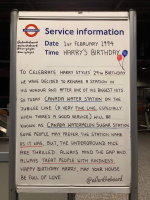 Service information
Date 1ST FEBRUARY 1994
Time HARRY'S BIRTHDAY
TO CELEBRATE HARRY STYLES 29TH BIRTHDAY
WE HAVE DECIDED TO RENAME A STATION IN
HIS HONOUR AND AFTER ONE OF HIS BIGGEST HITS
SO TODAY CANADA WATER STATION ON THE
JUBILEE LINE (A VERY FINE LINE, ESPECIALLY
WHEN THERE'S A GOOD SERVICE) WILL BE
KNOWN AS CANADA WATERMELON SUGAR STATION
SOME PEOPLE MAY PREFER THE STATION NAME
AS IT WAS, BUT THE UNDERGROUND MICE
ARE THRILLED. ALWAYS MIND THE GAP AND
ALWAYS TREAT PEOPLE WITH KINDNESS.
HAPPY BIRTHDAY HARRY, MAY YOUR HOUSE
BE FULL OF LOVE.
@allontheboard